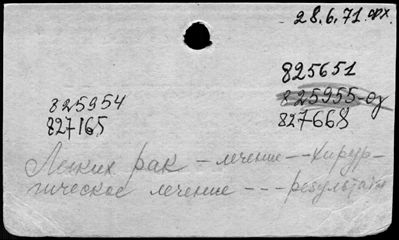 28.6.71 орх.
825651
825954
825955-оз
827165
827668
Легких рак – лечение -- хирур-
гическое лечение --- результаты